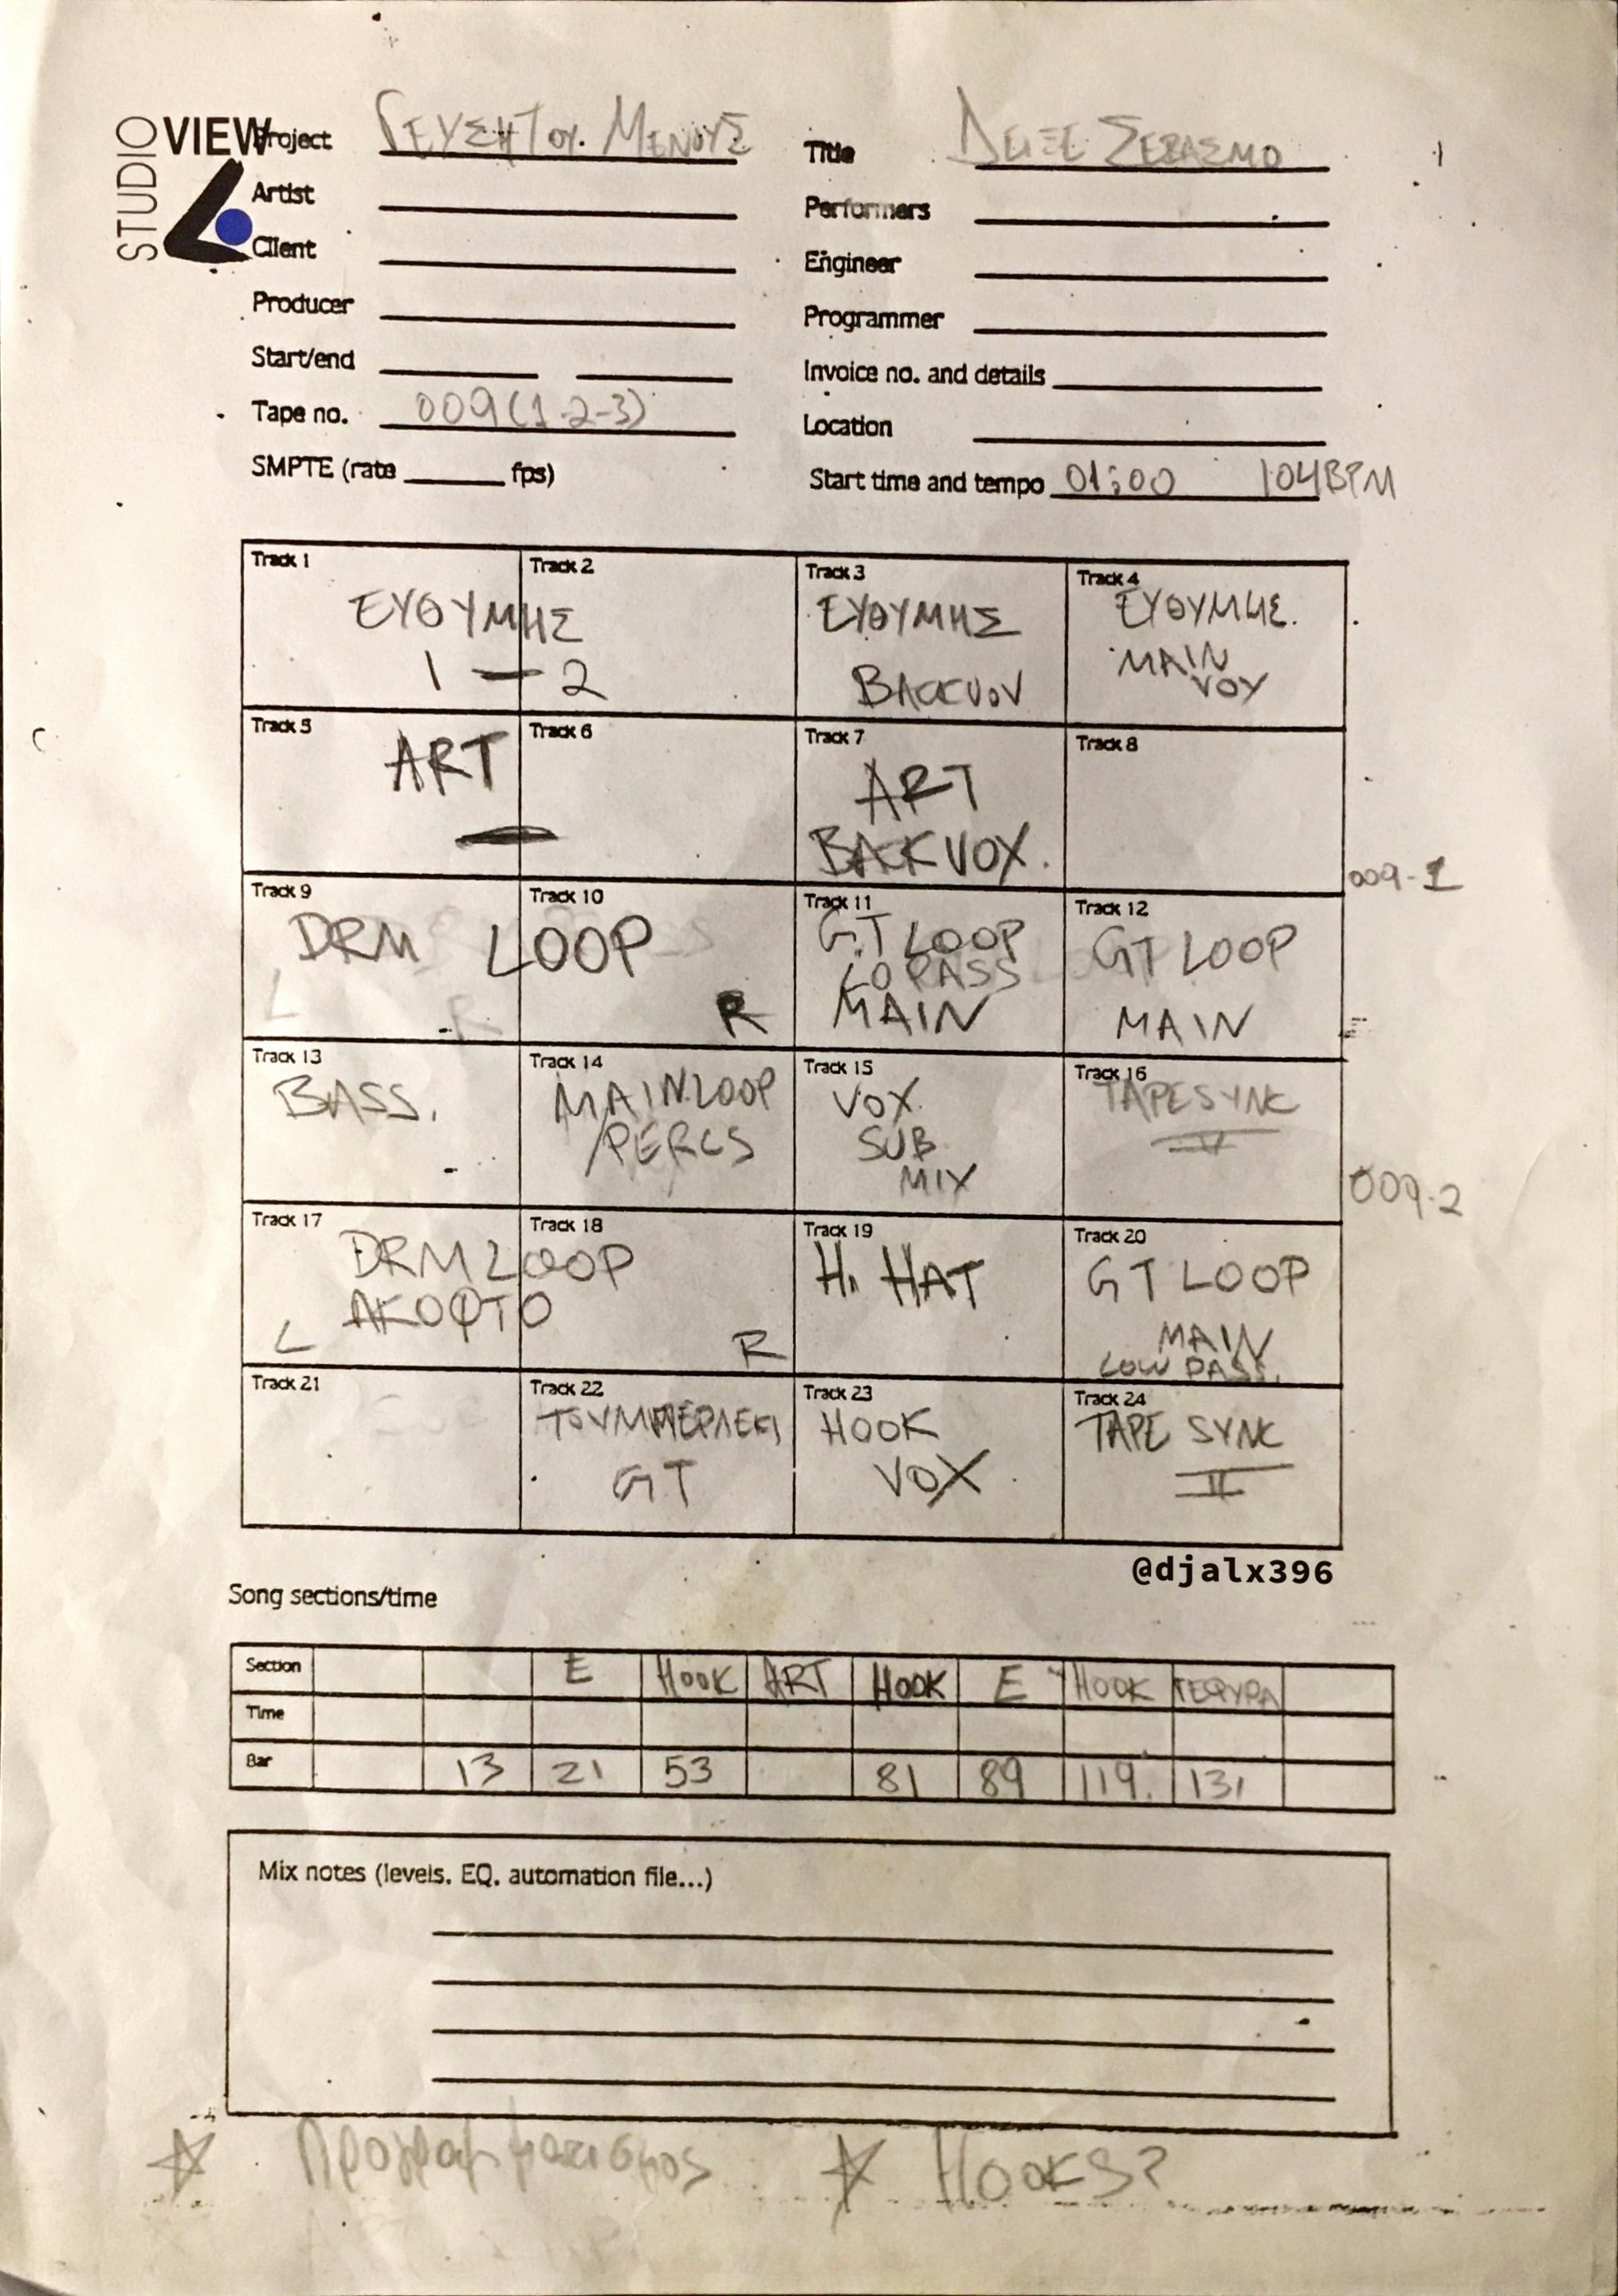 STUDIO VIEW
Project ΓΕΥΣΗ ΤΟΥ ΜΕΝΟΥΣ
Title ΔΕΙΞΕ ΣΕΒΑΣΜΟ
Artist
Performers
Client
Engineer
Producer
Programmer
Start/end
Invoice no. and details
Tape no. 009(1-2-3)
Location
SMPTE (rate fps)
Start time and tempo 01:00 104BPM
Track 1 Track 2 Track 3 Track 4
ΕΥΘΥΜΗΣ ΕΥΘΥΜΗΣ ΕΥΘΥΜΗΣ.
1 — 2 BACKVOX MAIN
VOX
Track 5 Track 6 Track 7 Track 8
ART ART
BACKVOX.
009-1
Track 9 Track 10 Track 11 Track 12
DRM LOOP GT LOOP GT LOOP
LO PASS
L R R MAIN MAIN
Track 13 Track 14 Track 15 Track 16
BASS. MAIN LOOP VOX TAPE SYNC
/PERCS SUB
MIX
009-2
Track 17 Track 18 Track 19 Track 20
DRM LOOP HI HAT GT LOOP
ΑΚΟΦΤΟ
L R MAIN
LOW PASS.
Track 21 Track 22 Track 23 Track 24
ΤΟΥΜΠΕΡΛΕΚΙ HOOK TAPE SYNC
GT VOX II
@djalx396
Song sections/time
Section E HOOK ART HOOK E HOOK ΓΕΦΥΡΑ
Time
Bar 13 21 53 81 89 119. 131
Mix notes (levels, EQ, automation file...)
☆ Προγραμματισμος ☆ HOOKS?